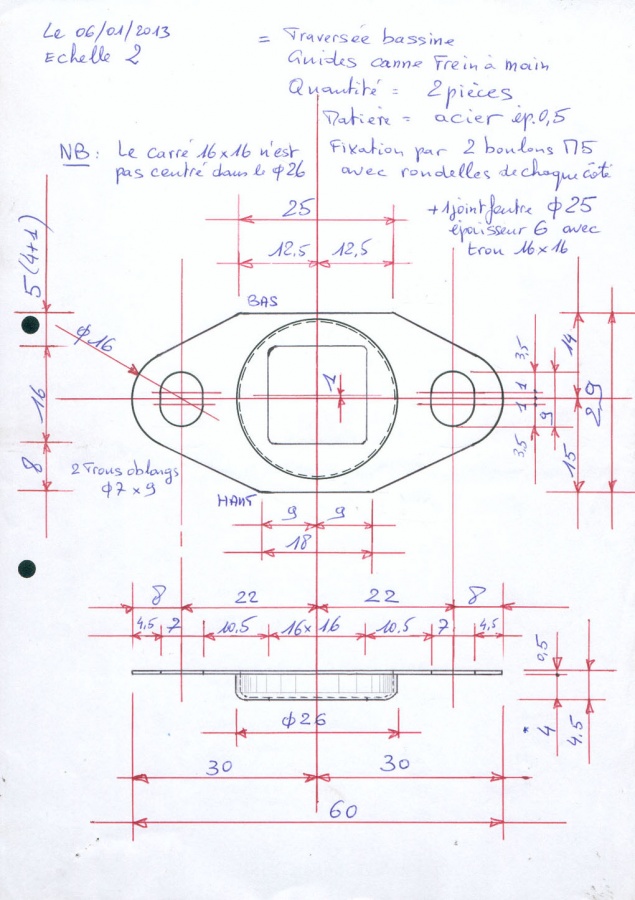 Le 06/01/2013
Echelle 2
= Traversée bassine
Guides canne Frein à main
Quantité = 2 pièces
Matière = acier ép. 0,5
NB : Le carré 16x16 n'est
pas centré dans le ϕ26
Fixation par 2 boulons M5
avec rondelles de chaque côté
+ 1 joint feutre ϕ25
épaisseur 6 avec
trou 16x16
25
12,5 12,5
5(4+1)
BAS
ϕ16
16
8
1
3,5
1
1
3,5
9
14
15
29
2 Trous oblongs
ϕ7 x 9
HAUT
9 9
18
8 22 22 8
4,5 7 10,5 16x16 10,5 7 4,5
0,5
* 4
4,5
ϕ26
30 30
60